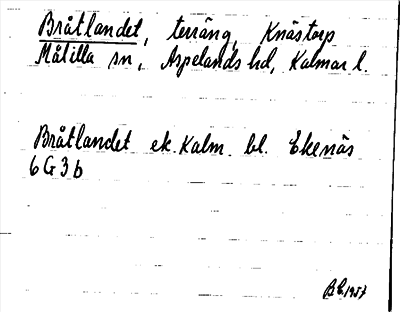 Bråtlandet, terräng, Knästorp
Målilla sn, Aspelands hd, Kalmar l.
Bråtlandet ek. Kalm. bl. Ekenäs
6 G 3 b
1957